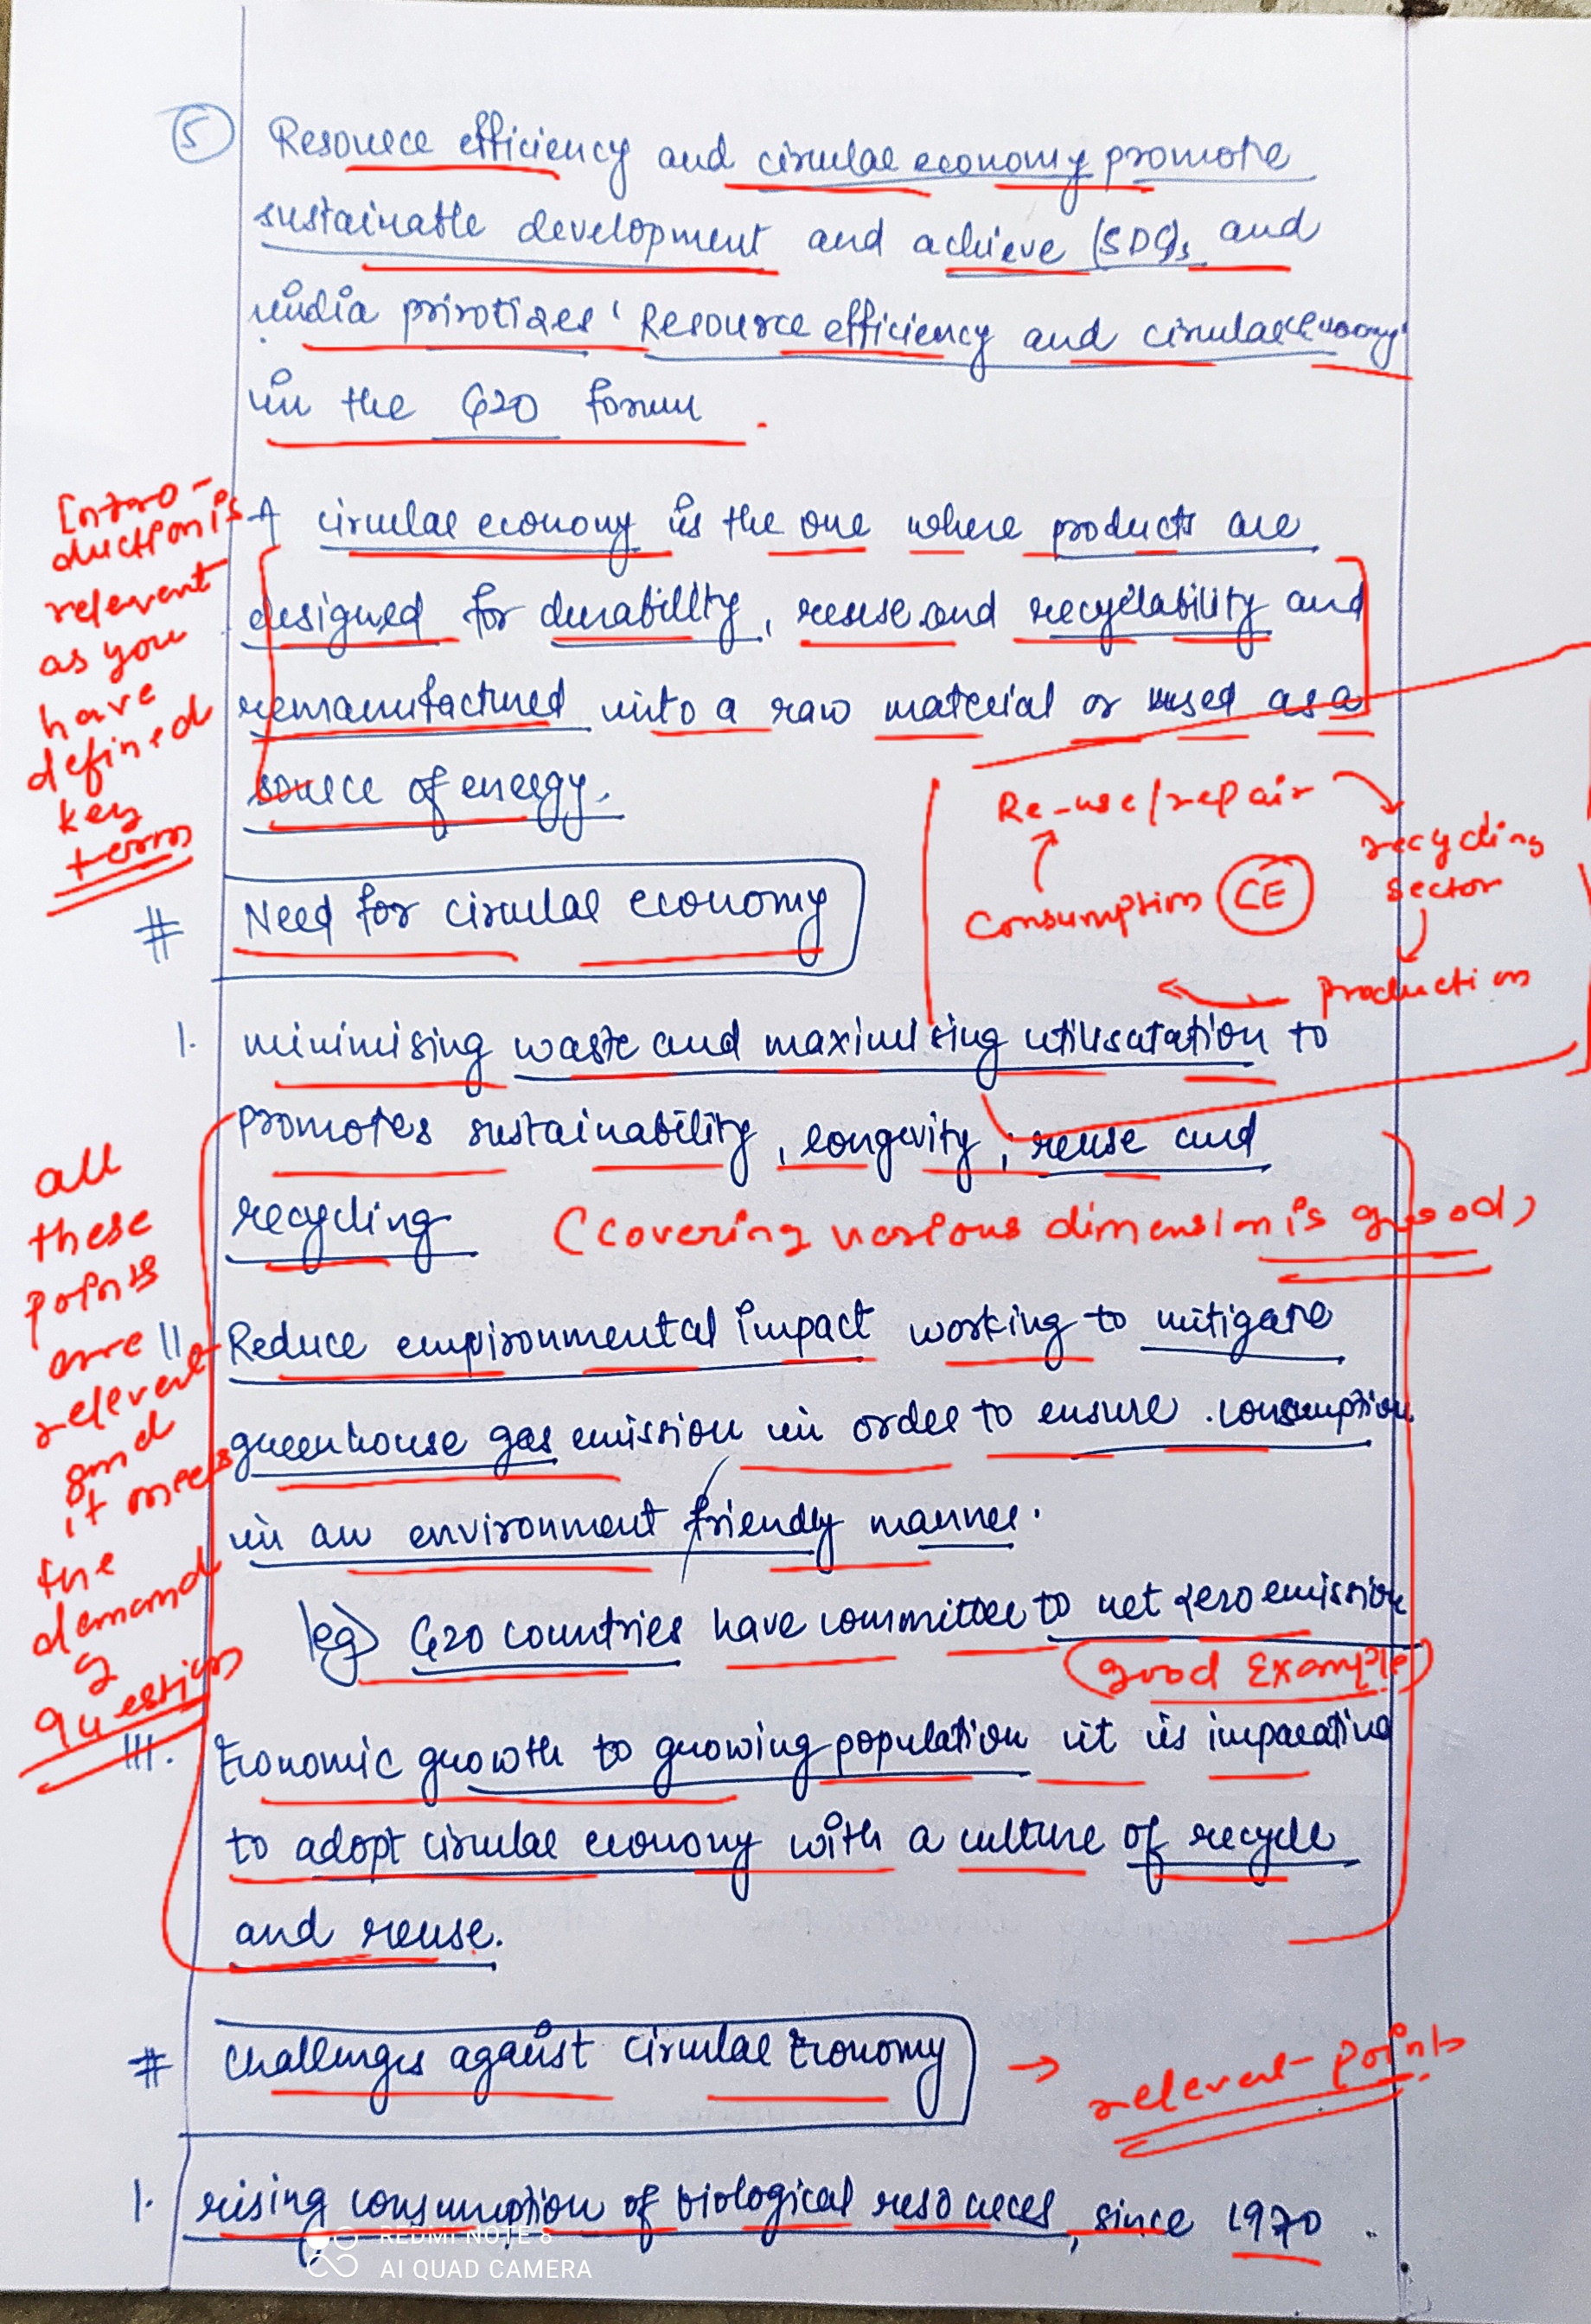 5 Resource efficiency and circular economy promote
sustainable development and achieve (SDG)s and
india prirotizes 'Resource efficiency and circular economy'
in the G20 forum
Intro-
duction is
relevent
as you
have
defined
key
terms
A circular economy is the one where products are
designed for durability, reuse and recyclability and
remanufactured into a raw material or used as a
source of energy.
Re-use/repair
recycling
sector
production
Consumption
CE
# Need for circular economy
1. minimising waste and maximising utilisatation to
promotes sustainability, longevity, reuse and
recycling
(Covering various dimension is good)
all
these
points
are
relevent
and
it meets
the
demand
of
question
II Reduce environmental impact working to mitigate
greenhouse gas emission in order to ensure consumption
in an environment friendly manner.
eg) G20 countries have committee to net zero emission
Good Example
III. Economic growth to growing population it is imparative
to adopt circular economy with a culture of recycle
and reuse.
# Challenges against circular Economy
→ relevent points
1. rising consumption of biological resources, since 1970
REDMI NOTE 8
AI QUAD CAMERA